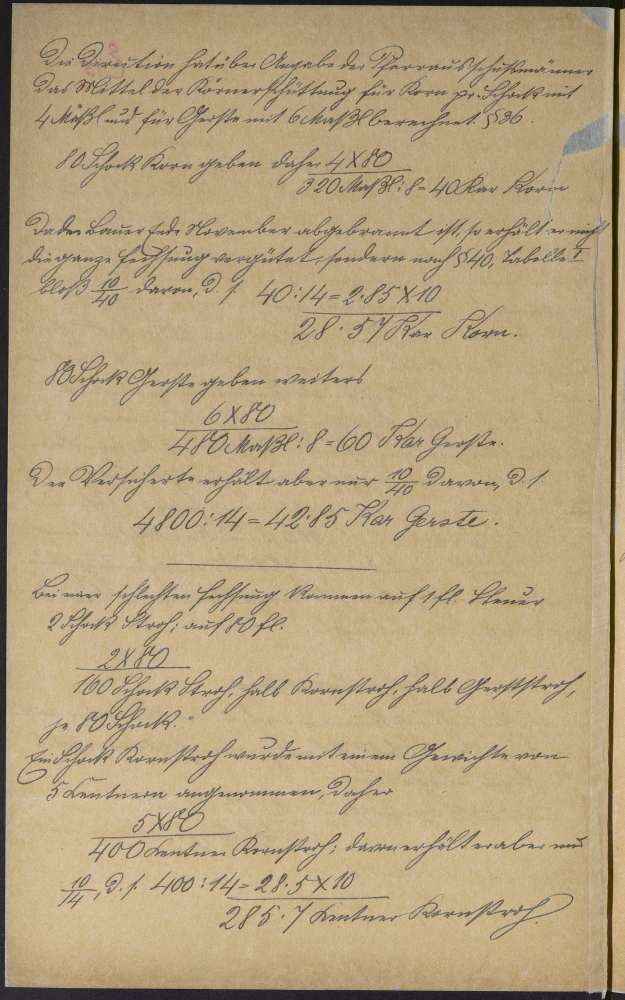 Die Direction hat über Angabe der Pfarrausschußmänner
das Mittel der Körnerschüttung für Korn pr. Schock mit
4 Maßl und für Gerste mit 6 Maßl berechnet. § 36.
80 Schock Korn geben daher 4 X 80
320 Maßl : 8 = 40 Kar Korn
Da der Bauer Ende November abgebrannt ist, so erhält er nicht
die ganze Fechsung vergütet, sondern nach § 40, Tabelle I
bloß 10/40 davon, d. s. 40 : 14 = 2·85 X 10
28·57 Kar Korn.
80 Schock Gerste geben weiters
6 X 80
480 Maßl : 8 = 60 Kar Gerste.
Der Versicherte erhält aber nur 10/40 davon, d. s.
4800 : 14 = 42·85 Kar Gerste.
Bei einer schlechten Fechsung kommen auf 1 fl. Steuer
2 Schock Stroh; auf 80 fl.
2 X 80
160 Schock Stroh, halb Kornstroh, halb Gerststroh,
je 80 Schock.
Ein Schock Kornstroh wurde mit einem Gewichte von
5 Zentnern angenommen, daher
5 X 80
400 Zentner Kornstroh; davon erhält er aber nur
10/14, d. s. 400 : 14 = 28·5 X 10
285·7 Zentner Kornstroh.